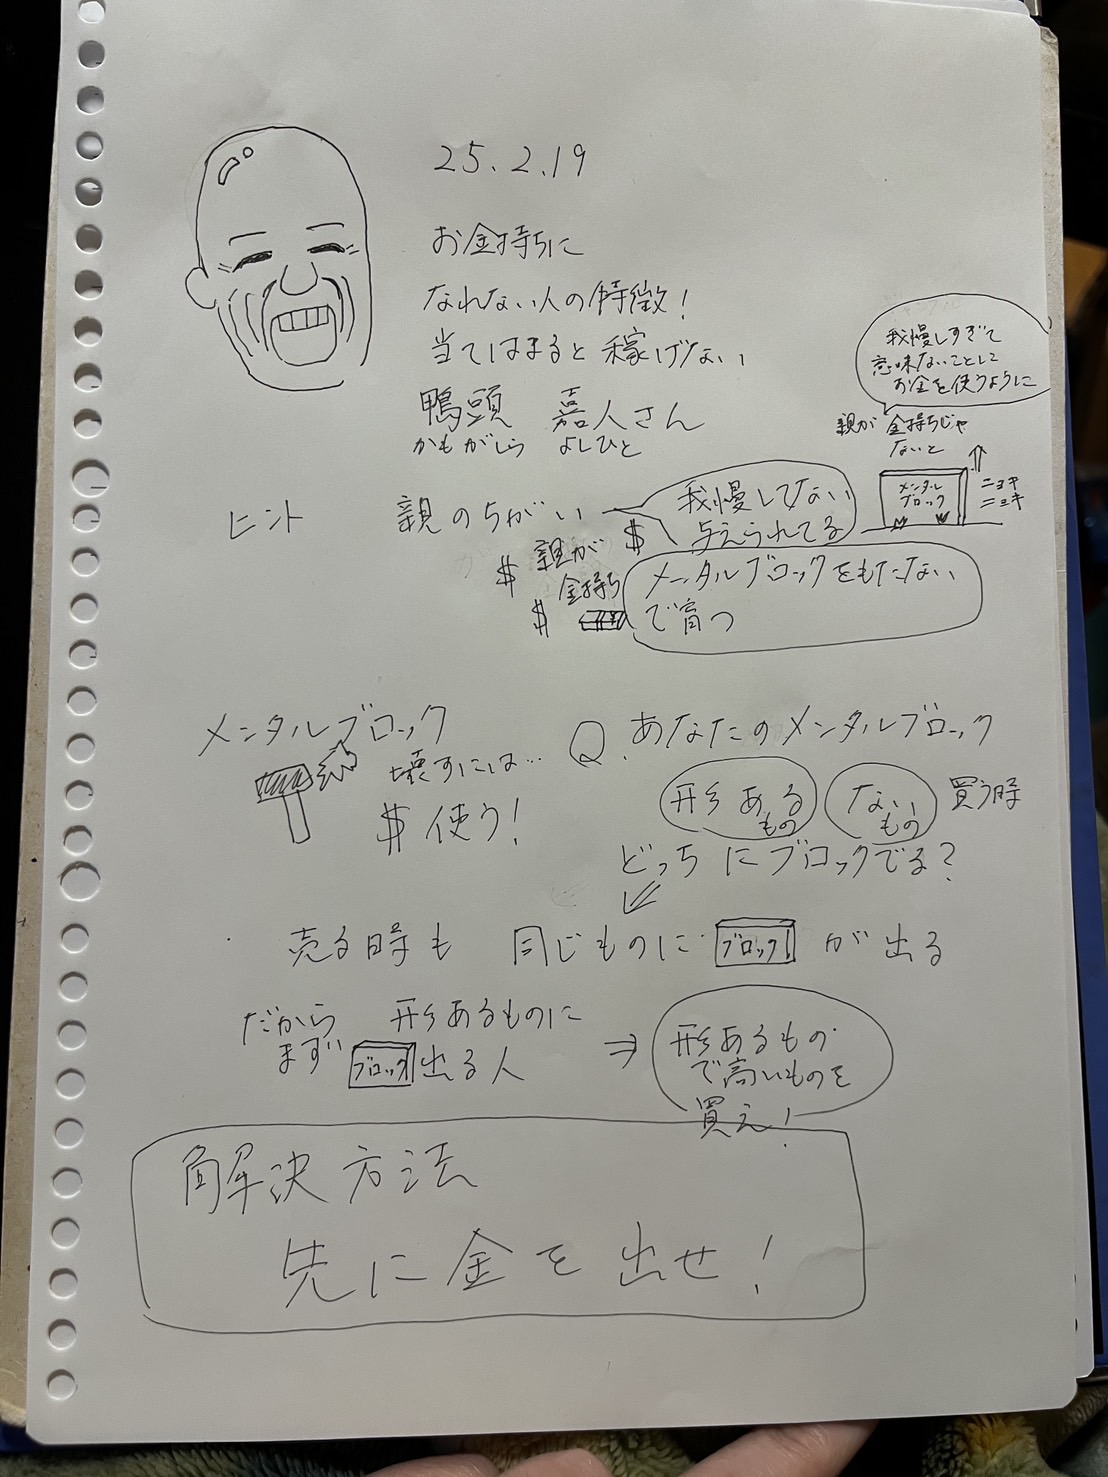 25.2.19
お金持ちに
なれない人の特徴!
当てはまると稼げない
鴨頭 嘉人さん
かもがしら よしひと
我慢しすぎて
意味ないことして
お金を使うように
親が金持ちじゃ
ないと
メンタル
ブロック
ニョキ
ニョキ
ヒント 親のちがい
我慢してない
与えられてる
$ 親が $
金持ち
$
メンタルブロックをもたない
で育つ
メンタルブロック
壊すには…
$ 使う!
Q.あなたのメンタルブロック
形あるもの ないもの 買う時
どっちにブロックでる?
売る時も 同じものに ブロック! が出る
だから 形あるものに
まずい ブロック 出る人
⇒ 形あるもの
で高いものを
買え!
解決方法
先に金を出せ!